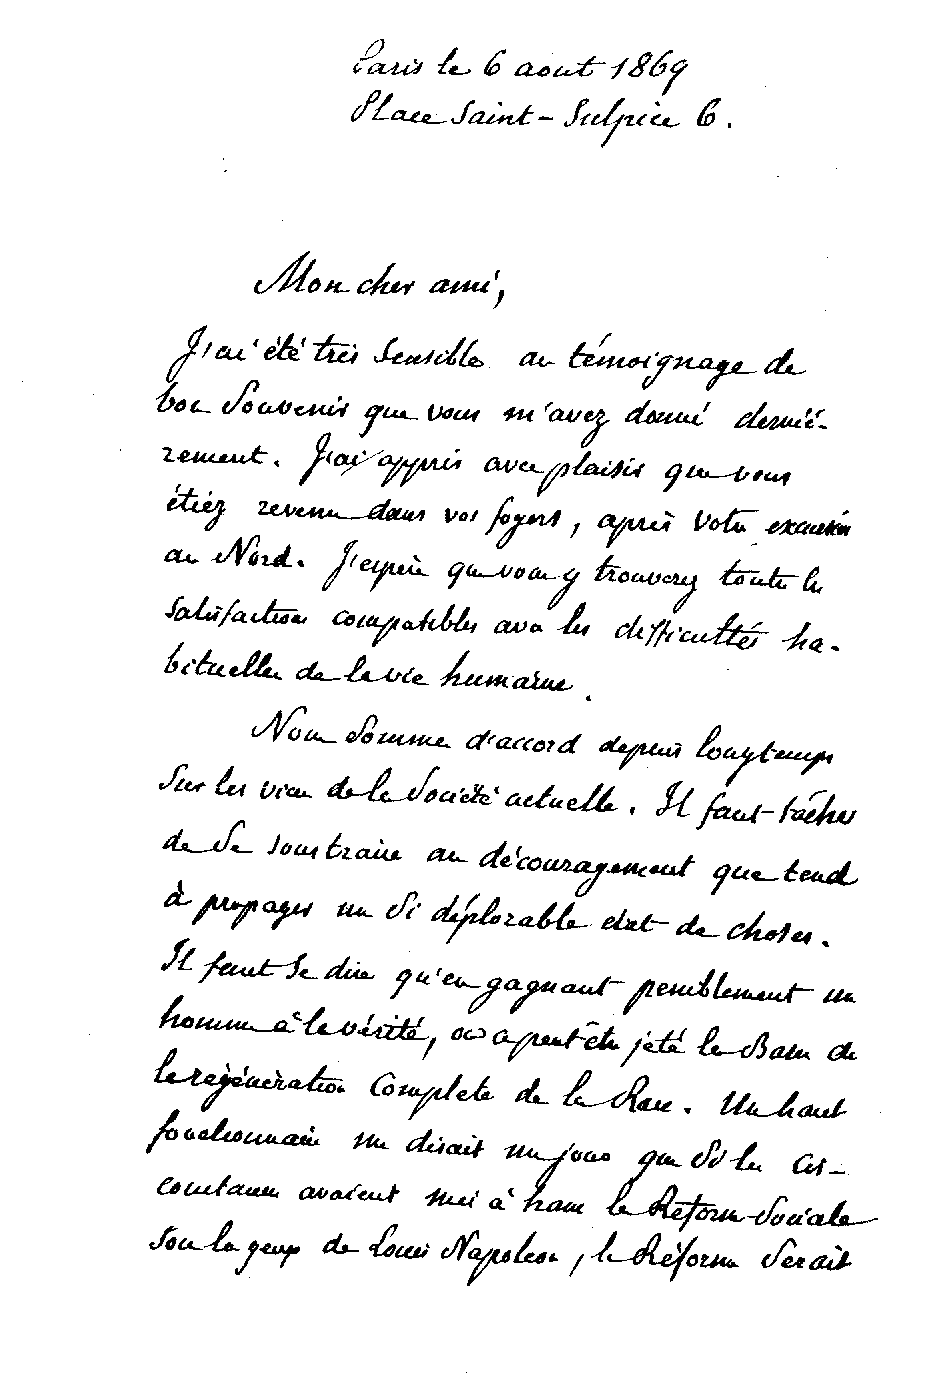 Paris le 6 aout 1869
Place Saint-Sulpice 6.
Mon cher ami,
J'ai été très sensible au témoignage de
bon souvenir que vous m'avez donné derniè-
rement. J'ai appris avec plaisir que vous
étiez revenu dans vos foyers, après votre excursion
au Nord. J'espère que vous y trouverez toutes les
satisfactions compatibles avec les difficultés ha-
bituelles de la vie humaine.
Nous sommes d'accord depuis longtemps
sur les vices de la société actuelle. Il faut tâcher
de se soustraire au découragement que tend
à propager un si déplorable état de choses.
Il faut se dire qu'en gagnant péniblement un
homme à la vérité, on a peut être jeté les bases de
la régénération complète de la Race. Un haut
fonctionnaire me disait un jour que si les cir-
constances avaient mis à Ham la Réforme Sociale
sous les yeux de Louis Napoléon, la Réforme serait